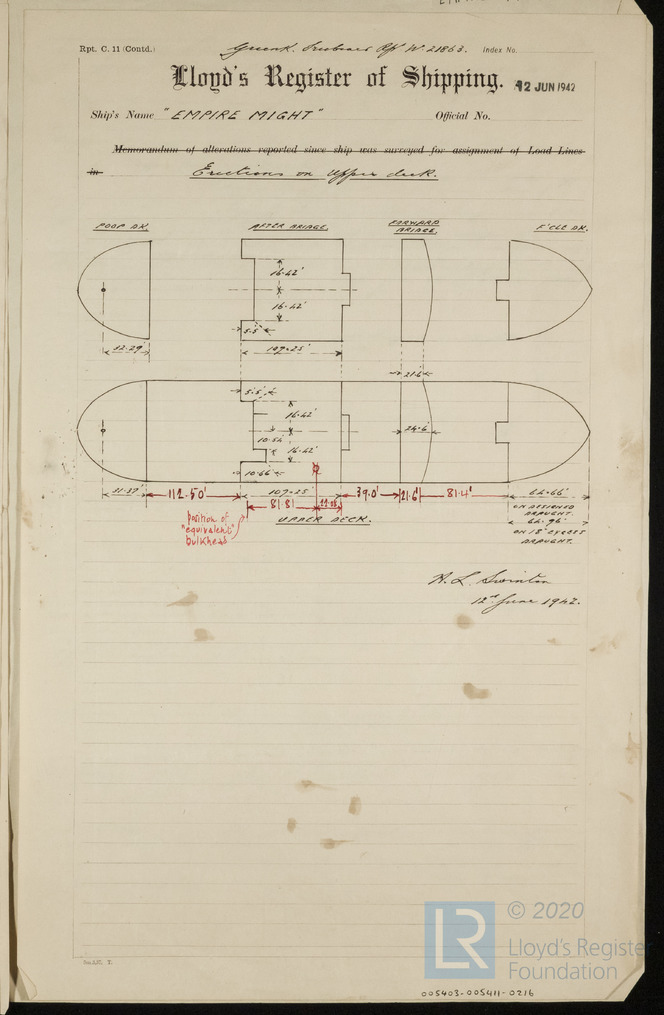 Rpt. C. 11 (Contd.) Greenk. Freeboard Rpt W. 21863. Index No.
Lloyd's Register of Shipping.
12 JUN 1942
Ship's Name "EMPIRE MIGHT" Official No.
Memorandum of alterations reported since ship was surveyed for assignment of Load Lines
in Erections on Upper deck.
POOP DK. AFTER BRIDGE. FORWARD BRIDGE. F'CLE DK.
16.42'
16.42'
5.5'
32.29'
107.25'
21.6'
5.5'
16.42'
24.6
10.54'
16.42'
10.66'
31.37' 112.50' 107.25' 39.0' 21.6' 81.4' 62.66'
81.81
ON ASSIGNED DRAUGHT.
UPPER DECK.
position of "equivalent" bulkhead
62.96'
ON 18" EXCESS DRAUGHT.
A. L. Swinton
12th June 1942.
© 2020
LR
Lloyd's Register
Foundation
005403-005411-0216